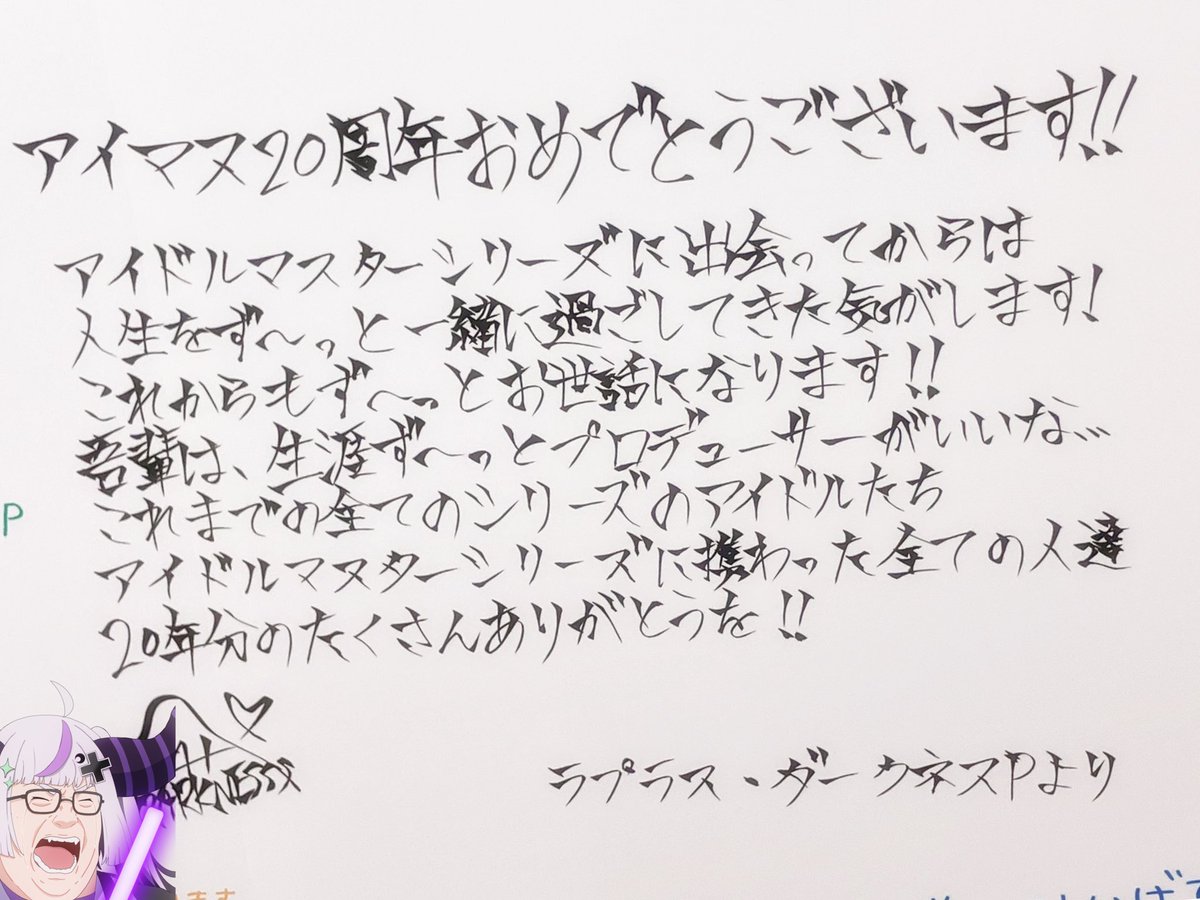 アイマス20周年おめでとうございます!!
アイドルマスターシリーズに出会ってからは
人生をず〜っと一緒に過ごしてきた気がします!
これからもず〜っとお世話になります!!
吾輩は、生涯ず〜っとプロデューサーがいいな…
これまでの全てのシリーズのアイドルたち
アイドルマスターシリーズに携わった全ての人達
20年分のたくさんありがとうを!!
ラプラス・ダークネスPより
P
ます